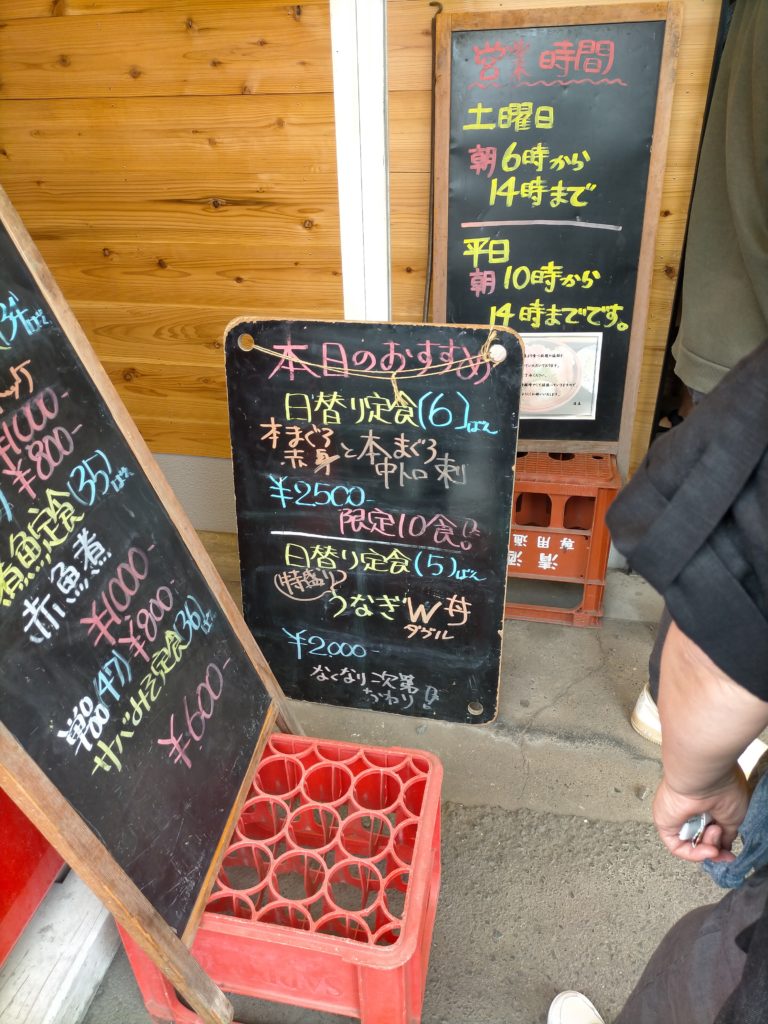 営業時間
土曜日
朝6時から
14時まで
平日
朝10時から
14時までです。
本日のおすすめ
日替り定食(6)ばん
本まぐろ
赤身と本まぐろ
中トロ刺
¥2500-
限定10食。
日替り定食(5)ばん
(特盛り)
うなぎW丼
ダブル
¥2000-
なくなり次第
おわり
¥1000-
¥800-
煮魚定食(35)ばん
赤魚煮
¥1000-
¥800-
単品(47)
サバみそ定食(36)ばん
¥900-
清酒
専用函